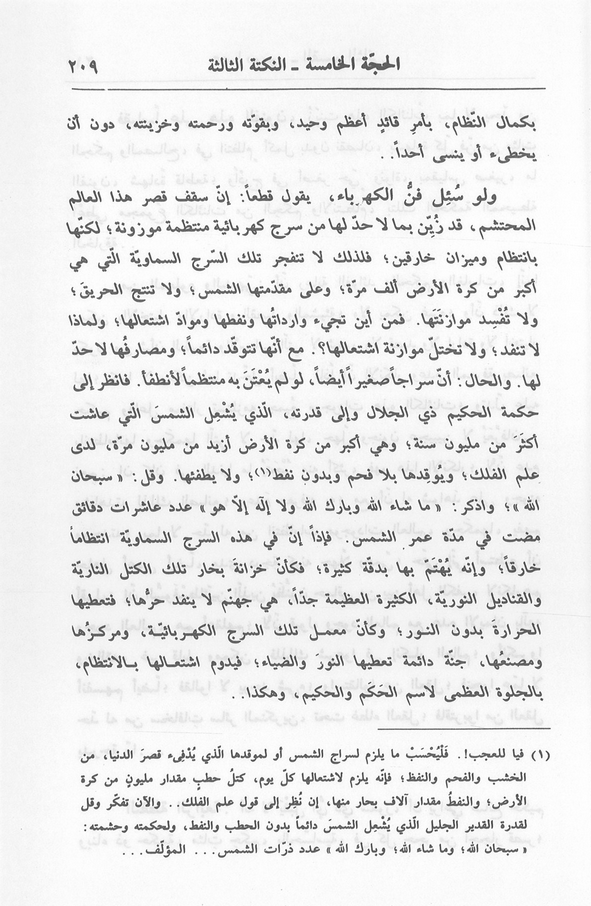 الحجّة الخامسة - النكتة الثالثة ٢٠٩
بكمال النّظام، بأمرِ قائدٍ أعظم وحيد، وبقوّته ورحمته وخزينته، دون أن
يخطىء أو ينسى أحداً. .
ولو سُئِل فنُّ الكهرباء، يقول قطعاً: إنّ سقف قصر هذا العالم
المحتشم، قد زُيِّن بما لا حدّ لها من سرج كهربائية منتظمة موزونة؛ لكنها
بانتظام وميزان خارقين؛ فلذلك لا تنفجر تلك السّرج السماويّة الّتي هي
أكبر من كرة الأرض ألف مرّة؛ وعلى مقدّمتها الشمس؛ ولا تنتج الحريق؛
ولا تُفْسِد موازنَتَها. فمن أين تجيء وارداتُها ونفطها وموادّ اشتعالها؛ ولماذا
لا تنفد؛ ولا تختلّ موازنة اشتعالها؟. مع أنّها تتوقّد دائماً؛ ومصارفُها لا حدّ
لها. والحال: أنّ سراجاً صغيراً أيضاً، لو لم يُعْتَنَ به منتظماً لأنطفأ. فانظر إلى
حكمة الحكيم ذي الجلال وإلى قدرته، الّذي يُشْعِل الشمسَ الّتي عاشت
أكثَرَ من مليون سنة؛ وهي أكبر من كرة الأرض أزيد من مليون مرّة، لدى
علم الفلك؛ ويُوقِدها بلا فحم وبدونِ نفط(١)؛ ولا يطفئها. وقل: «سبحان
الله»؛ واذكر: «ما شاء الله وبارك الله ولا إلٰه إلاّ هو» عدد عاشرات دقائق
مضت في مدّة عمر الشمس. فإذاً إنّ في هذه السرج السماويّة انتظاماً
خارقاً؛ وإنّه يُهْتَمّ بها بدقّة كثيرة؛ فكأنّ خزانةَ بخار تلك الكتل الناريّة
والقناديل النوريّة، الكثيرة العظيمة جدّاً، هي جهنّم لا ينفد حرُّها؛ فتعطيها
الحرارة بدون النـور؛ وكأنّ معمـل تلك السرج الكهـربائيّـة، ومركـزُها
ومصنعُها، جنّة دائمة تعطيها النورَ والضياء؛ فيدوم اشتعالها بـالانتظام،
بالجلوة العظمى لاسم الحَكَم والحكيم، وهكذا. .
(١) فيا للعجب!. فَلْيُحْسَبْ ما يلزم لسراج الشمس أو لموقدها الّذي يُدْفِىء قصرَ الدنيا، من
الخشب والفحم والنفط؛ فإنّه يلزم لاشتعالها كلّ يوم، كتلُ حطبٍ مقدار مليونٍ من كرة
الأرض؛ والنفطُ مقدار آلاف بحار منها، إن نُظِر إلى قول علم الفلك. . والآن تفكّر وقل
لقدرة القدير الجليل الّذي يُشْعِل الشمسَ دائماً بدون الحطب والنفط، ولحكمته وحشمته:
«سبحان الله؛ وما شاء الله؛ وبارك الله» عدد ذرّات الشمس. . . المؤلّف. . .